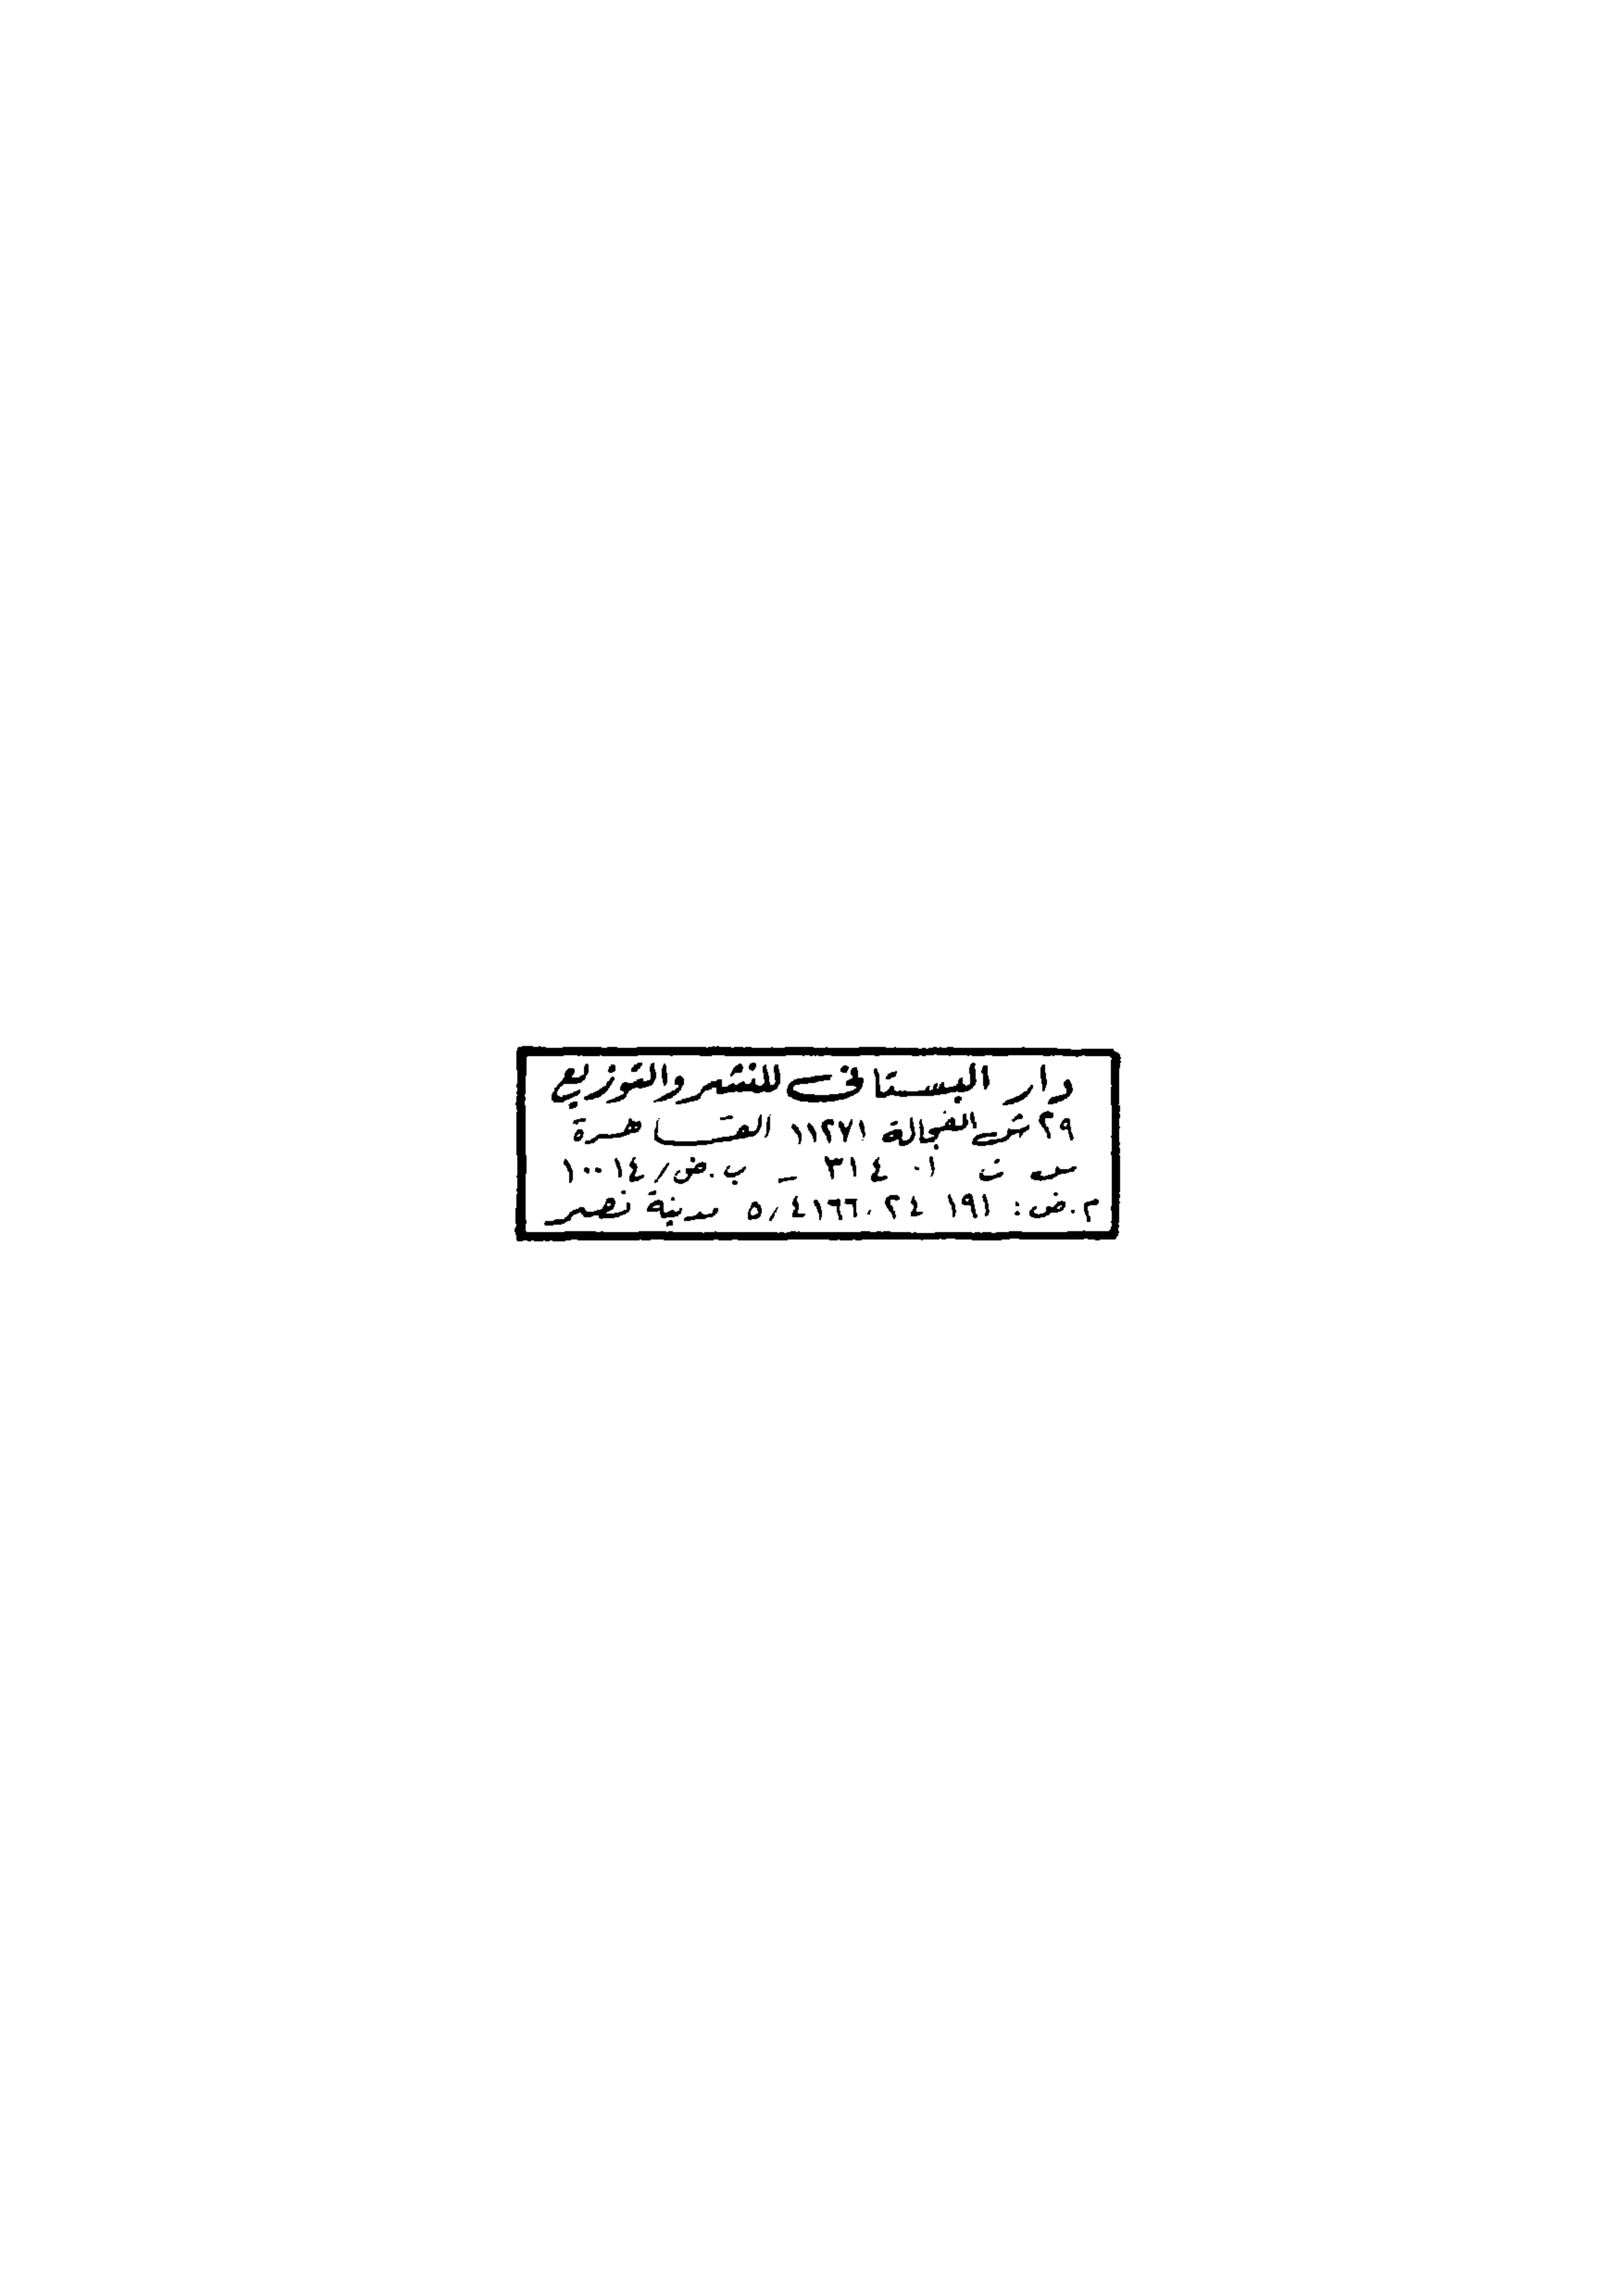 دار البستانى للنشر والتوزيع
٢٩ ش الفجالة ١١٢٧١ القاهرة
س ت ٣١٤٠١ - ب.ض/١٠٠١٤
م.ض: ١٩١ ٢٤ ٥/٤١٦٦٠ مدينة نصر